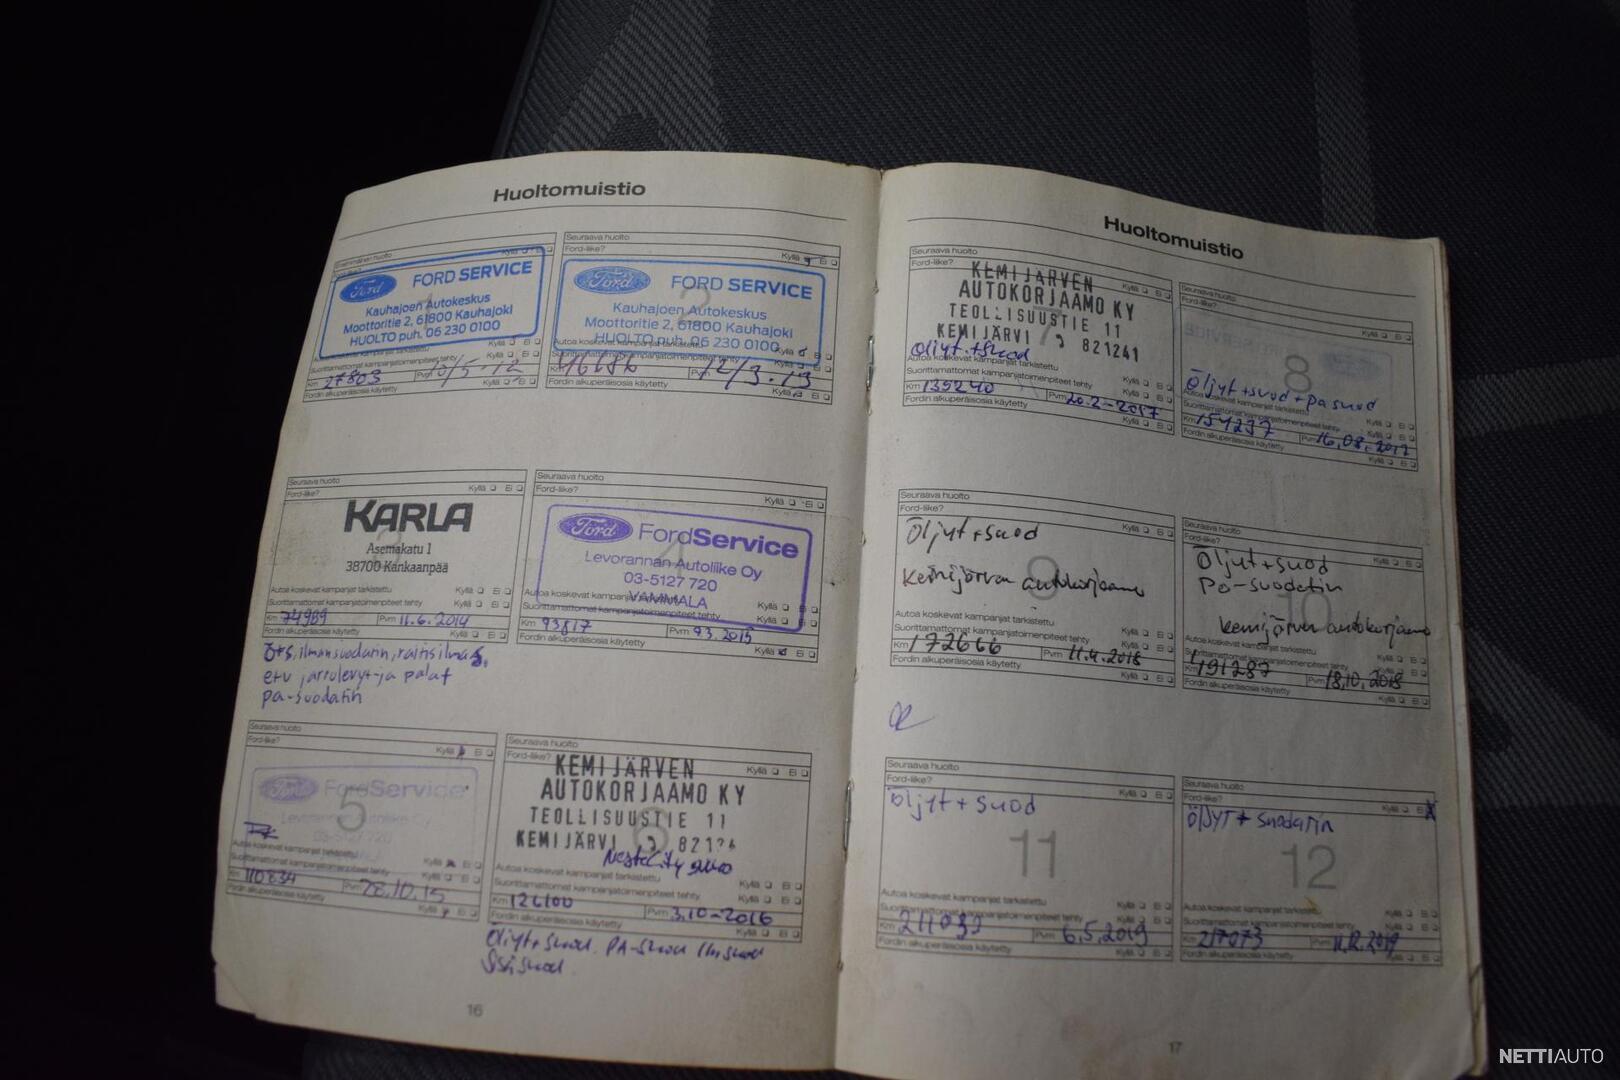 Huoltomuistio
Ensimmäinen huolto
Ford-like?
Kyllä
Ford FORD SERVICE
Kauhajoen Autokeskus
Moottoritie 2, 61800 Kauhajoki
HUOLTO puh. 06 230 0100
1
Autoa koskevat kampanjat tarkistettu
Suorittamattomat kampanjatoimenpiteet tehty Kyllä
Km 27803 Pvm 10/5-12
Fordin alkuperäisosia käytetty Kyllä
Seuraava huolto
Ford-liike?
Kyllä Ei
Ford FORD SERVICE
Kauhajoen Autokeskus
Moottoritie 2, 61800 Kauhajoki
HUOLTO puh. 06 230 0100
2
Autoa koskevat kampanjat tarkistettu Kyllä
Suorittamattomat kampanjatoimenpiteet tehty Kyllä
Km Pvm 12/3-13
Fordin alkuperäisosia käytetty Kyllä Ei
Seuraava huolto
Ford-liike?
Kyllä Ei
KARLA
Asemakatu 1
38700 Kankaanpää
3
Autoa koskevat kampanjat tarkistettu Kyllä Ei
Suorittamattomat kampanjatoimenpiteet tehty Kyllä Ei
Km 74989 Pvm 11.6.2014
Fordin alkuperäisosia käytetty Kyllä Ei
ö+s, ilmansuodatin, raitisilmas,
etu jarrulevyt-ja palat
pa-suodatin
Seuraava huolto
Ford-liike?
Kyllä Ei
Ford FordService
Levorannan Autoliike Oy
03-5127 720
VAMMALA
4
Autoa koskevat kampanjat tarkistettu Kyllä
Suorittamattomat kampanjatoimenpiteet tehty Kyllä
Km 93817 Pvm 9.3.2015
Fordin alkuperäisosia käytetty Kyllä Ei
Seuraava huolto
Ford-liike?
Kyllä Ei
Ford FordService
Levorannan Autoliike Oy
03-5127 720
5
Autoa koskevat kampanjat tarkistettu Kyllä Ei
Suorittamattomat kampanjatoimenpiteet tehty Kyllä Ei
Km 110834 Pvm 28.10.15
Fordin alkuperäisosia käytetty Kyllä Ei
Seuraava huolto
Ford-liike?
Kyllä Ei
KEMIJÄRVEN
AUTOKORJAAMO KY
TEOLLISUUSTIE 11
KEMIJÄRVI
6
Autoa koskevat kampanjat tarkistettu Kyllä Ei
Suorittamattomat kampanjatoimenpiteet tehty Kyllä Ei
Km 126100 Pvm 3.10-2016
Fordin alkuperäisosia käytetty Kyllä Ei
Öljyt+suod. PA-suod Ilmsuod
Sisäsuod.
16
Huoltomuistio
Seuraava huolto
Ford-liike?
Kyllä Ei
KEMIJÄRVEN
AUTOKORJAAMO KY
TEOLLISUUSTIE 11
KEMIJÄRVI 821241
7
Öljyt+suod
Autoa koskevat kampanjat tarkistettu
Suorittamattomat kampanjatoimenpiteet tehty Kyllä Ei
Km 139240 Pvm 20.2-2017
Fordin alkuperäisosia käytetty Kyllä Ei
Seuraava huolto
Ford-liike?
Kyllä Ei
8
Öljyt+suod+pa suod
Autoa koskevat kampanjat tarkistettu
Suorittamattomat kampanjatoimenpiteet tehty Kyllä Ei
Km 154237 Pvm 16.08.2017
Fordin alkuperäisosia käytetty Kyllä Ei
Seuraava huolto
Ford-liike?
Kyllä Ei
Öljyt+suod
9
Kemijärven autokorjaamo
Autoa koskevat kampanjat tarkistettu
Suorittamattomat kampanjatoimenpiteet tehty Kyllä Ei
Km 172666 Pvm 11.4.2018
Fordin alkuperäisosia käytetty Kyllä Ei
Seuraava huolto
Ford-liike?
Kyllä Ei
Öljyt+suod
Pa-suodatin
10
Kemijärven autokorjaamo
Autoa koskevat kampanjat tarkistettu Kyllä Ei
Suorittamattomat kampanjatoimenpiteet tehty Kyllä Ei
Km 191287 Pvm 18.10.2018
Fordin alkuperäisosia käytetty Kyllä Ei
Seuraava huolto
Ford-liike?
Kyllä Ei
Öljyt+suod
11
Autoa koskevat kampanjat tarkistettu Kyllä Ei
Suorittamattomat kampanjatoimenpiteet tehty Kyllä Ei
Km 211039 Pvm 6.5.2019
Fordin alkuperäisosia käytetty Kyllä Ei
Seuraava huolto
Ford-liike?
Kyllä Ei
Öljyt+suodatin
12
Autoa koskevat kampanjat tarkistettu Kyllä Ei
Suorittamattomat kampanjatoimenpiteet tehty Kyllä Ei
Km 217073 Pvm 11.12.2019
Fordin alkuperäisosia käytetty Kyllä Ei
17
NETTIAUTO